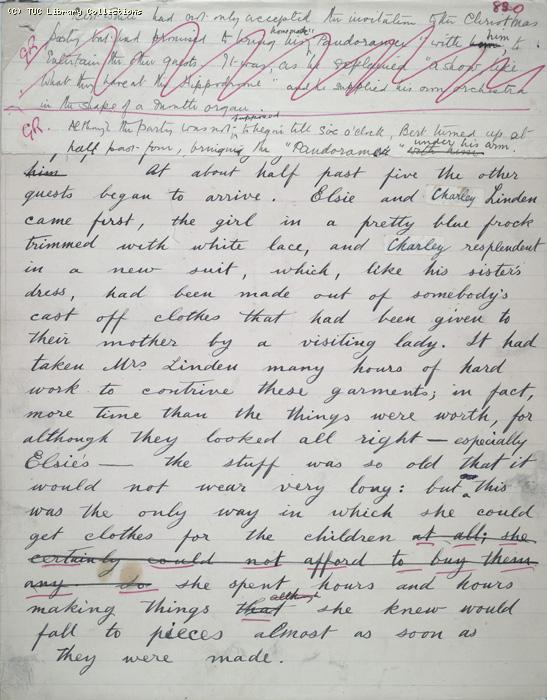 (C) TUC Library Collections
880
Bert White had not only accepted the invitation to the Christmas
homemade
party but had promised to bring his "Pandorama" with him him, to
GR
entertain the other guests. It was as he explained "a show like
what they have at the Hippodrome" and he supplied his own orchestra
in the shape of a mouth organ.
GR. Although the party was not supposed to begin till six o'clock, Bert turned up at
half past four, bringing the "Pandorama" with him under his arm.
him At about half past five the other
guests began to arrive. Elsie and Charley Linden
came first, the girl in a pretty blue frock
trimmed with white lace, and Charley resplendent
in a new suit, which, like his sister's
dress, had been made out of somebody's
cast off clothes that had been given to
their mother by a visiting lady. It had
taken Mrs Linden many hours of hard
work to contrive these garments; in fact,
more time than the things were worth, for
although they looked all right — especially
Elsie's — the stuff was so old that it
would not wear very long: but as this
was the only way in which she could
get clothes for the children at all; she
certainly could not afford to buy them
any so she spent hours and hours
making things that altho' she knew would
fall to pieces almost as soon as
they were made.